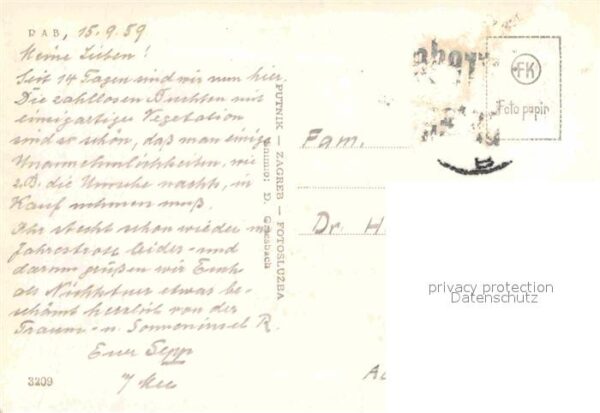 RAB, 15.9.59
Meine Lieben!
Seit 14 Tagen sind wir nun hier.
Die zahllosen Buchten mit
einzigartiger Vegetation
sind so schön, daß man einige
Unannehmlichkeiten, wie
z.B. die Unruhe nachts, in
Kauf nehmen muß.
Ihr steckt schon wieder im
leider und
darum grüßen wir Euch
als etwas be-
schämt herzlich von der
Traum- u. Sonneninsel R.
Euer Sepp
3209
PUTNIK - ZAGREB - FOTOSLUŽBA
Snimio: D. Griesbach
Fam.
Dr. H
FK
Foto papir
privacy protection
Datenschutz